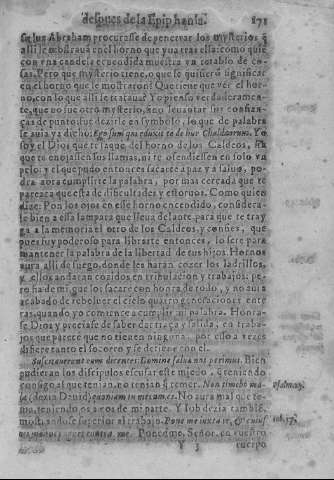 despues de la Epiphania. 171
su luz Abraham, procurasse de penetrar los mysterios q̃
alli se mostrauã en el horno que yua tras ella: como quiẽ
con vna candela encendida muestra vn retablo de co-
sas. Pero que mysterio tiene, o que se quisierõ significar
en el horno que le mostraron? Que tiene que ver el hor-
no, con lo que alli se trataua? Yo pienso verdaderamen-
te, que no fue otro mysterio, sino leuantar sus confian-
ças de punto: fue dezirle en symbolo, lo que de palabra
le auia ya dicho; Ego sum qui eduxi te de hur Chaldæorum. Yo
soy el Dios que te saque del horno de los Caldeos, sin
que te enojassen sus llamas, ni te ofendiessen en solo vn
pelo: y el que pudo entonces sacarte a paz y a saluo, po-
dra aora cumplirte la palabra, por mas cercada que te
parezca que esta de dificultades y estoruos. Como quien
dize: Pon los ojos en esse horno encendido, considera-
le bien a essa lampara que lleua delante, para que te tray-
ga a la memoria el otro de los Caldeos, y confies, que
pues fuy poderoso para librarte entonces, lo sere para
mantener la palabra de la libertad de tus hijos. Hornos
aura alli de fuego, donde les haran cozer los ladrillos,
y ellos andaran cozidos en tribulacion y trabajos: pe-
ro fia de mi, que los sacare con honra de todo, y no aura
acabado de reboluer el cielo quatro generaciones ente
ras, quando yo comience a cumplir mi palabra. Honra-
se Dios y preciase de saber dar traça y salida, en traba-
jos que parece que no tienen ninguna, por esso a vezes
difiere tanto el socorro y se detiene con el.
Suscitauerunt eum dicentes: Domine salua nos perimus. Bien
pudieran los discipulos escusar este miedo, q̃ teniendo
consigo al que tenian, no tenian q̃ temer. Non timebo ma-
la (dezia Dauid) quoniam tu mecum es. No aura mal que te- Psalm. 22.
ma, teniendo os a vos de mi parte. Y Iob dezia tambiẽ,
mostrandose superior al trabajo. Pone me iuxta te, & cuius Iob. 17.
uis manus pugnet contra me. Ponedme, Señor, en vuestro
Y 3 cuerpo